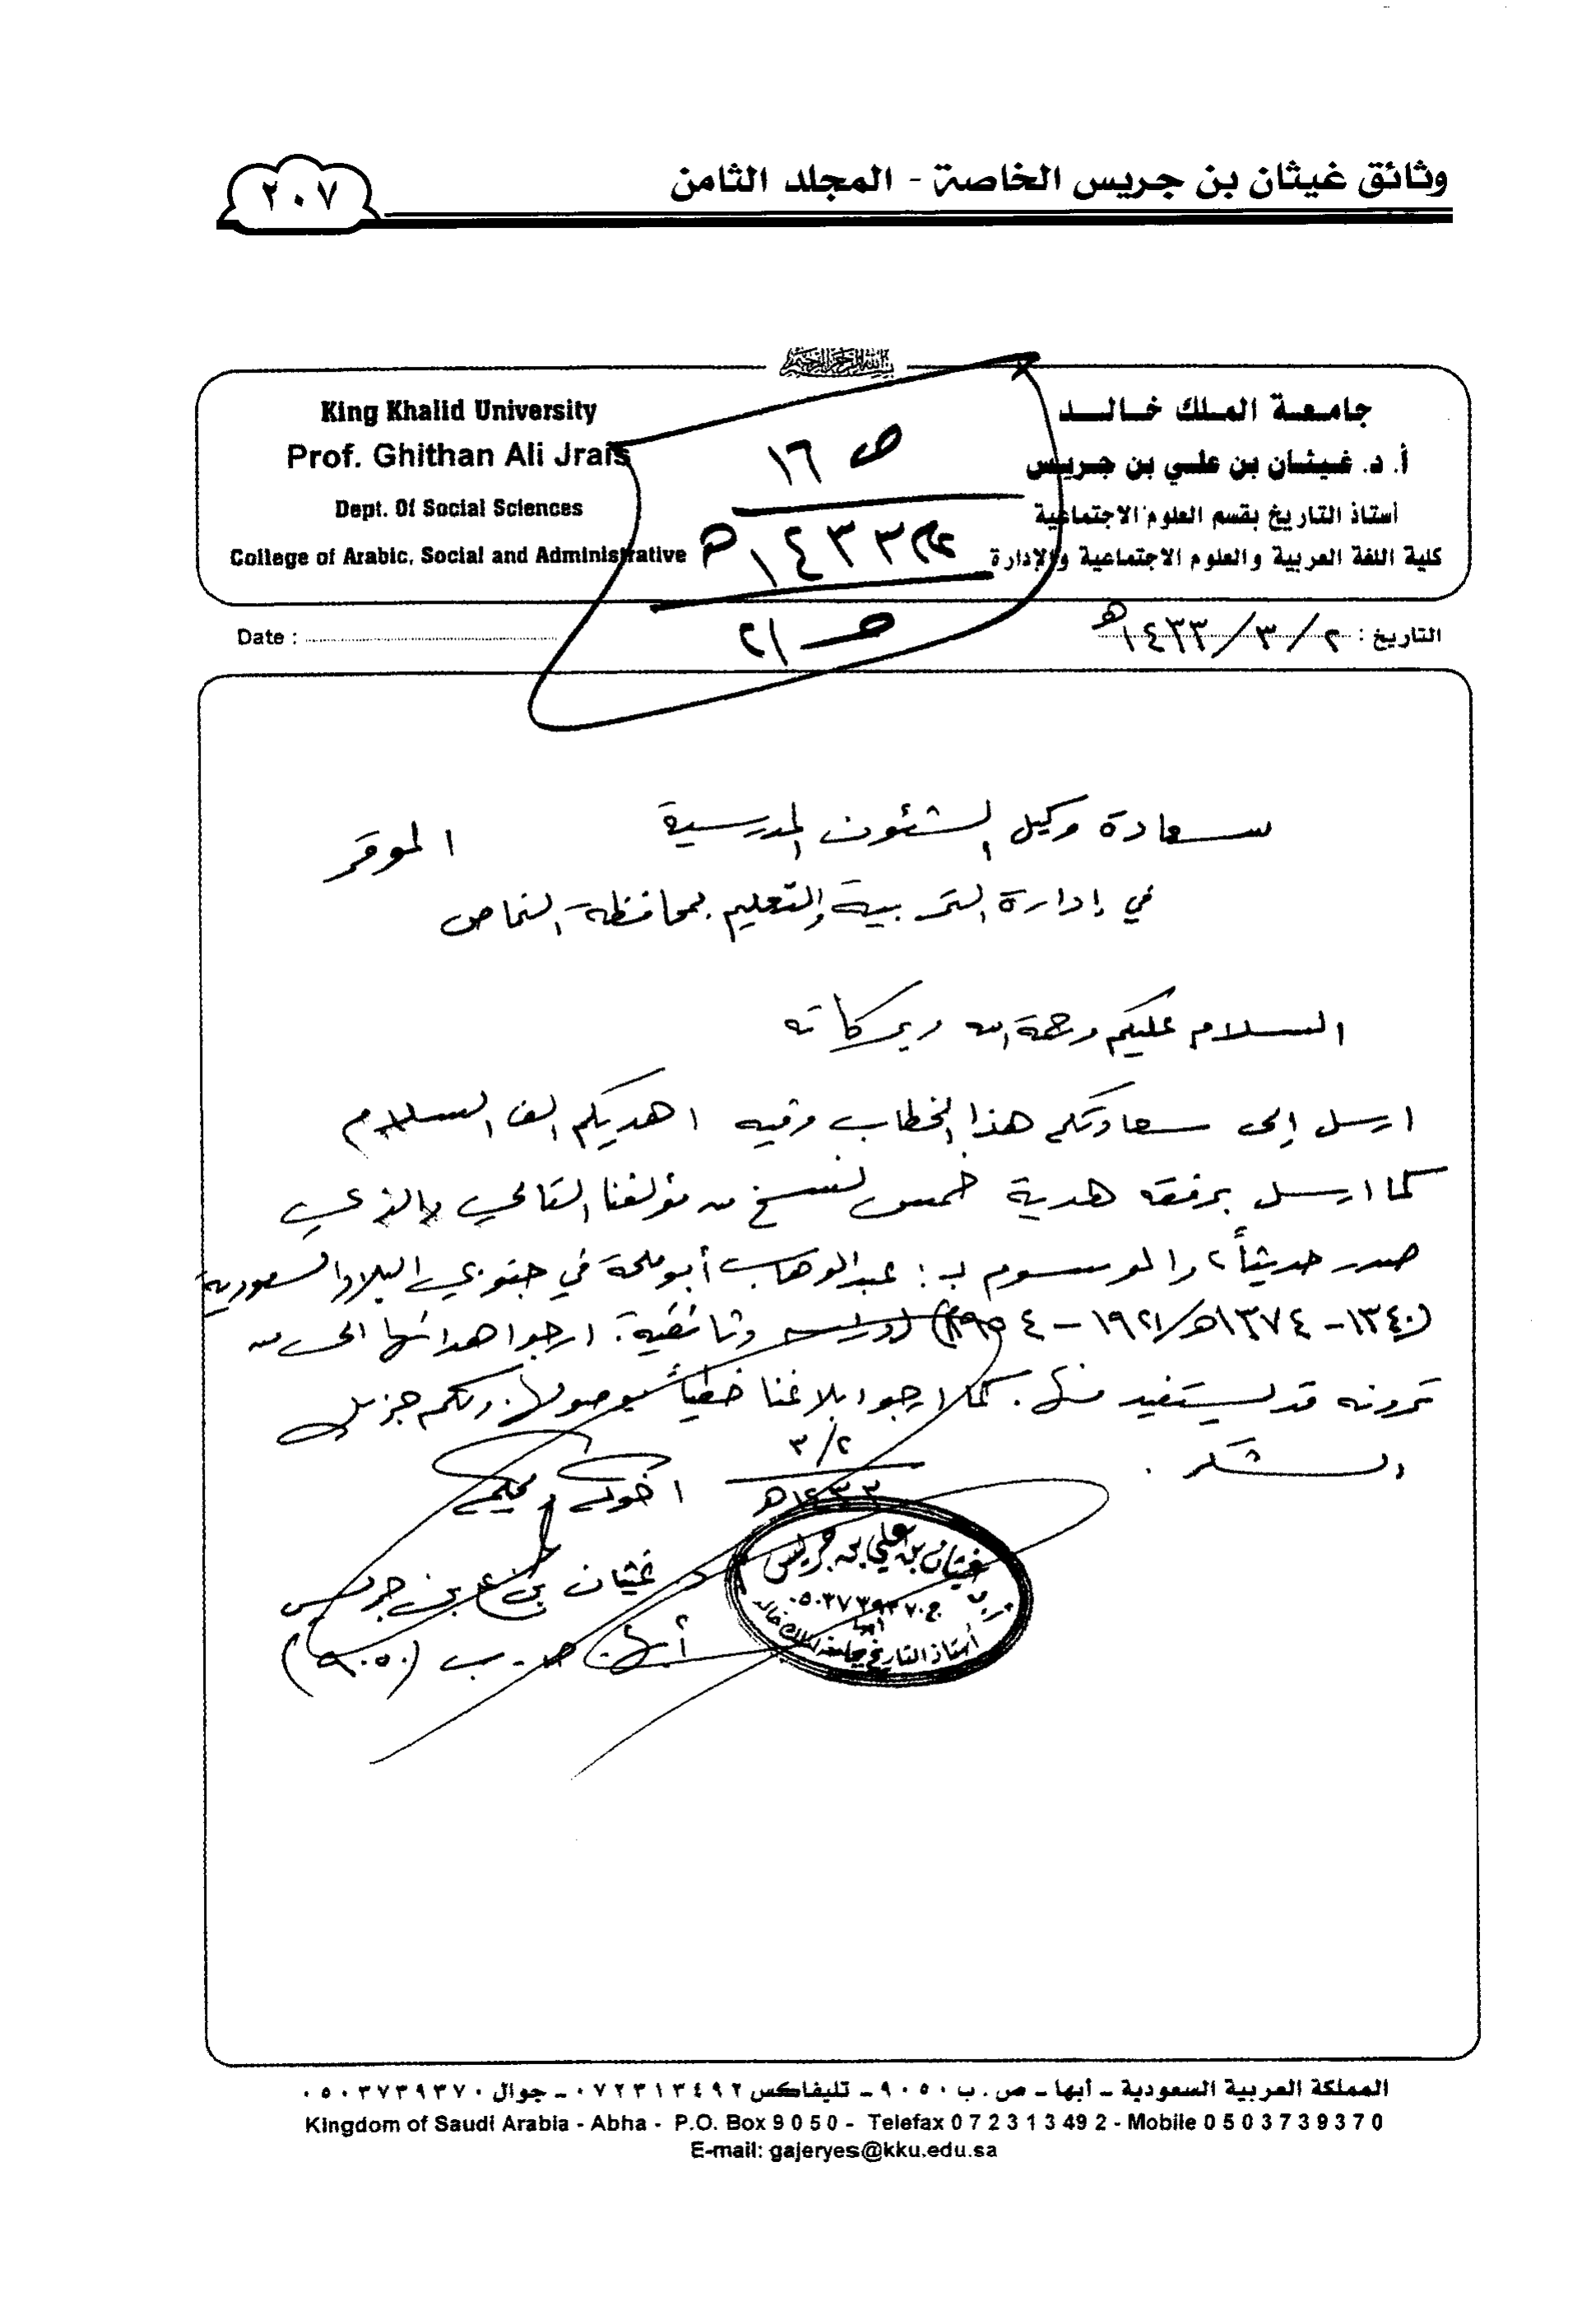 وثائق غيثان بن جريس الخاصة - المجلد الثامن
٢٠٧
بسم الله الرحمن الرحيم
جامعة الملك خالد
أ. د. غيثان بن علي بن جريس
أستاذ التاريخ بقسم العلوم الاجتماعية
كلية اللغة العربية والعلوم الاجتماعية والإدارة
King Khalid University
Prof. Ghithan Ali Jrais
Dept. Of Social Sciences
College of Arabic, Social and Administrative
ص ١٦
عام ١٤٣٣هـ
ص ٢١
التاريخ : ٢/٣/١٤٣٣هـ
Date :
سعادة وكيل الشئون المدرسية الموقر
في إدارة التربية والتعليم بمحافظة النماص
السلام عليكم ورحمة الله وبركاته
ارسل إلى سعادتكم هذا الخطاب وفيه اهديكم الف السلام
كما ارسل برفقه هدية خمس نسخ من مؤلفنا التالي والذي
صدر حديثاً، والموسوم بـ: عبدالوهاب أبو ملحة في جنوبي البلاد السعودية
(١٣٤٠-١٣٧٤هـ/١٩٢١-١٩٥٤م) (دراسة وثائقية. ارجوا هدائها الى من
ترونه قد يستفيد منها. كما ارجوا بلاغنا خطياً بوصولها. ولكم جزيل
الشكر.
٢/٣
١٤٣٣هـ
اخوكم ومحبكم
غيثان بن علي بن جريس
أبها ص.ب (٩٠٥٠)
غيثان بن علي بن جريس
ج ٠٥٠٣٧٣٩٣٧٠
أبها
أستاذ التاريخ بجامعة الملك خالد
المملكة العربية السعودية - أبها - ص . ب ٩٠٥٠ - تليفاكس ٠٧٢٣١٣٤٩٢ - جوال ٠٥٠٣٧٣٩٣٧٠
Kingdom of Saudi Arabia - Abha - P.O. Box 9 0 5 0 - Telefax 0 7 2 3 1 3 49 2 - Mobile 0 5 0 3 7 3 9 3 7 0
E-mail: gajeryes@kku.edu.sa